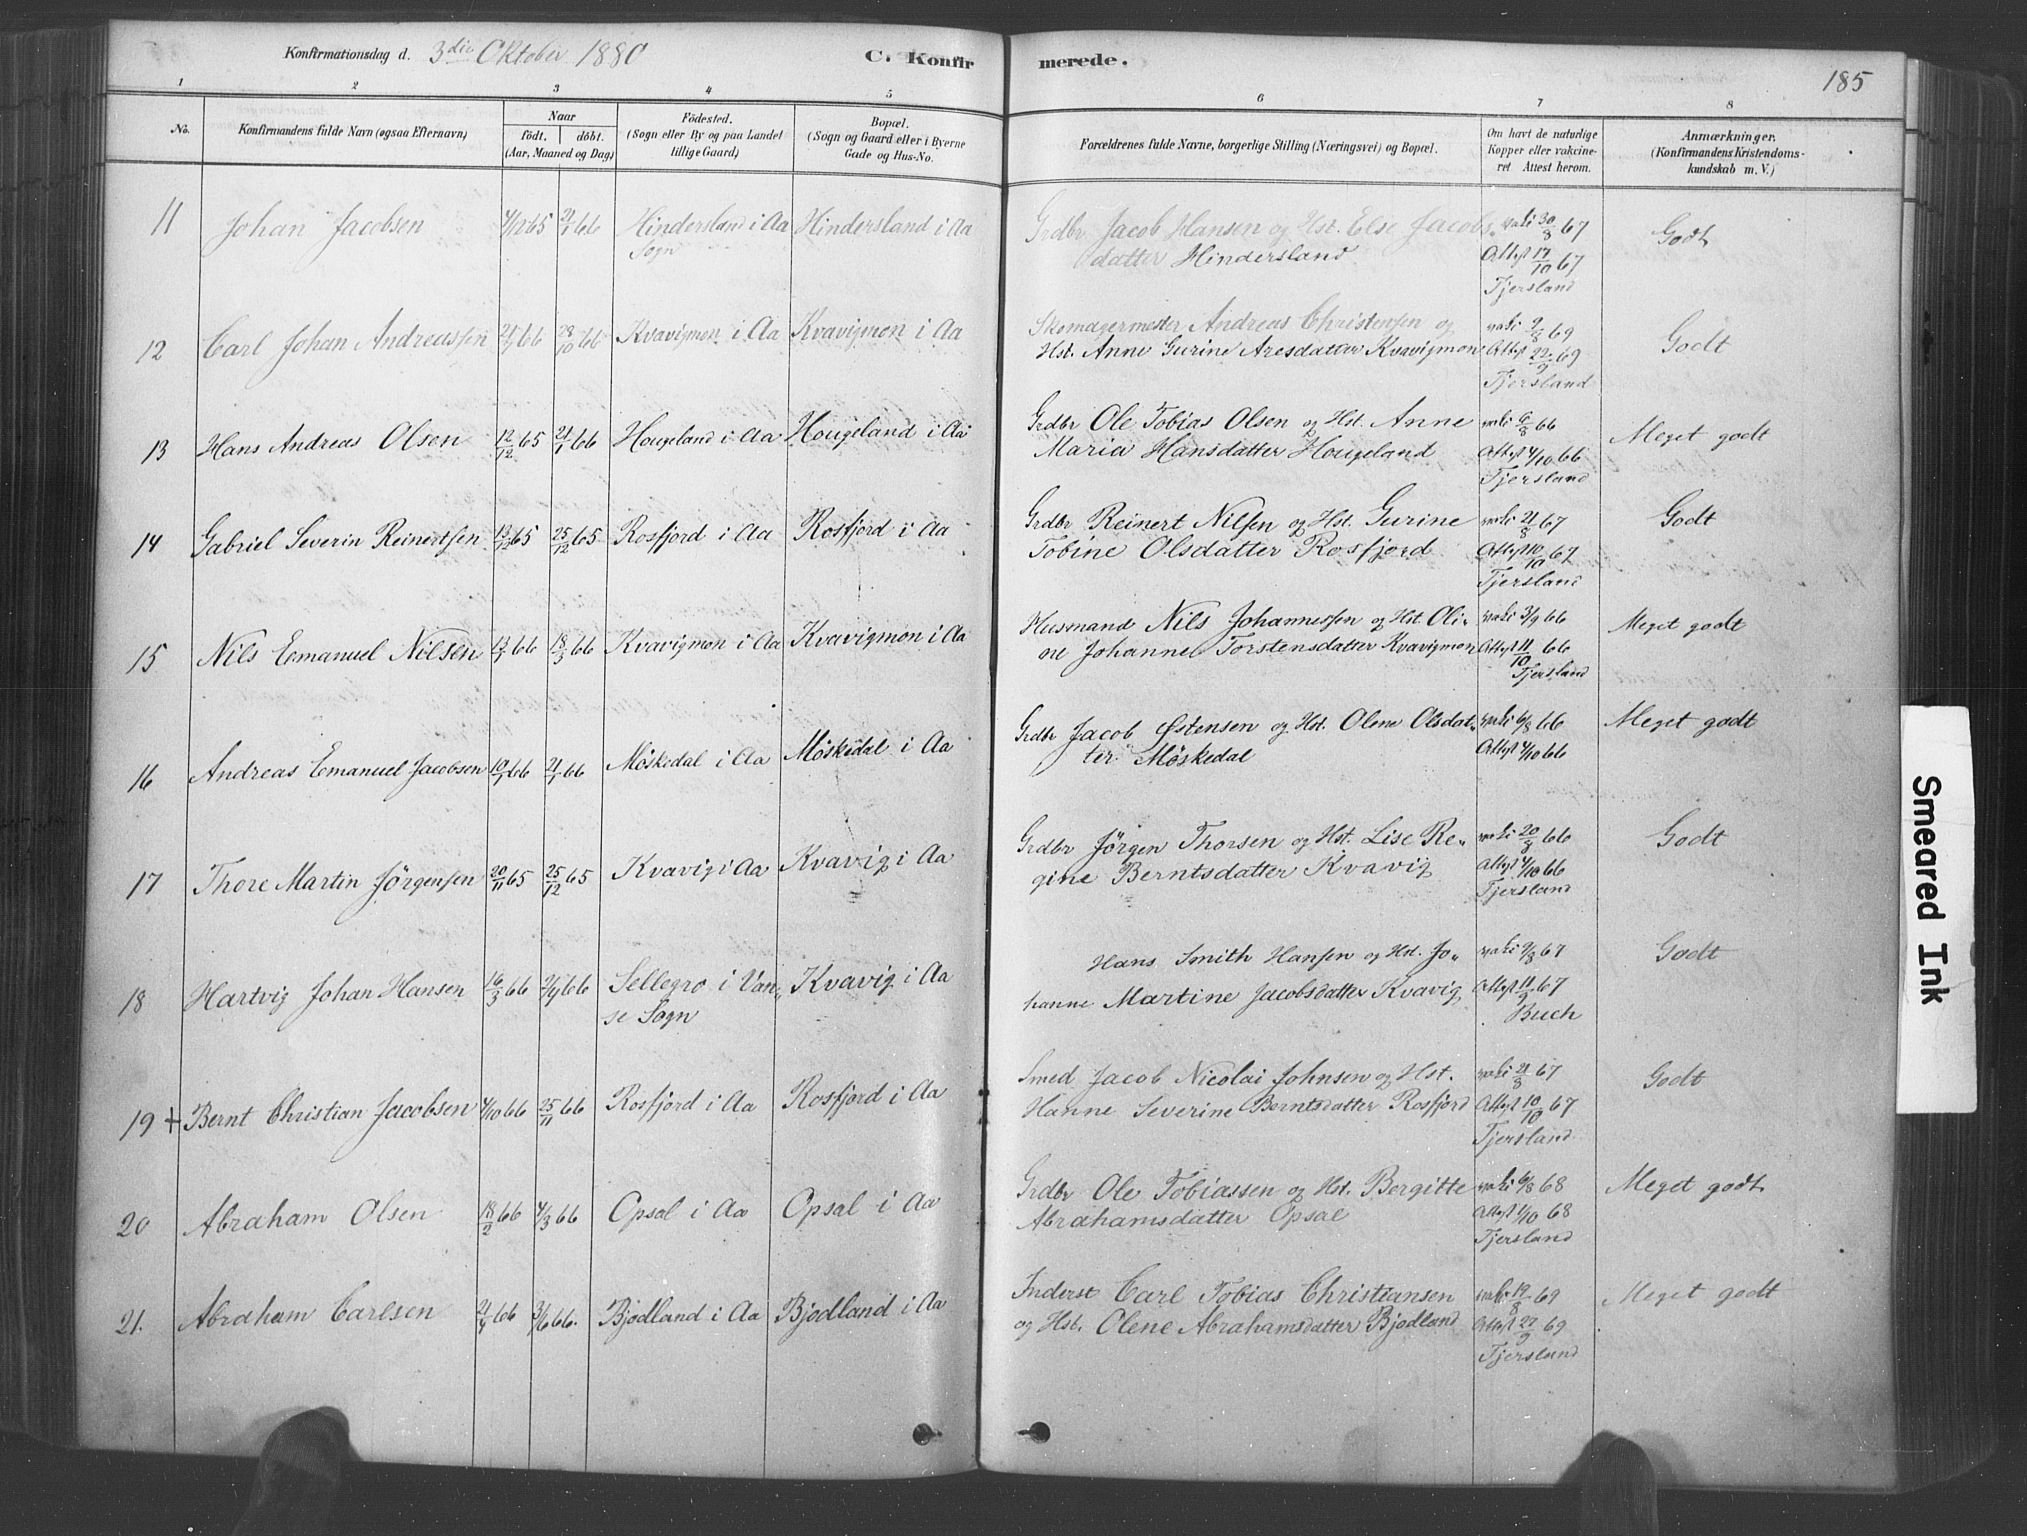 Konfirmationsdag d. 3die Oktober 1880
C. Konfirmerede.
185
1 2 3 4 5 6 7 8
No.
Konfirmandens fulde Navn (ogsaa Efternavn)
Naar
födt. döbt.
(Aar, Maaned og Dag)
Födested.
(Sogn eller By og paa Landet
tillige Gaard)
Bopæl.
(Sogn og Gaard eller i Byerne
Gade og Hus-No.
Forældrenes fulde Navne, borgerlige Stilling (Næringsvei) og Bopæl.
Om havt de naturlige
Kopper eller vakcine-
ret Attest herom.
Anmærkninger.
(Konfirmandens Kristendoms-
kundskab m. V.)
11 Johan Jacobsen 4/12 65 21/1 66 Hindersland i Aa Hindersland i Aa Grdbr Jacob Hansen og Hst. Else Jacobs- vaki 30/8 67 Godt
Sogn datter Hindersland Attest 17/10 67
Tjersland
12 Carl Johan Andreassen 66 28/10 66 Kvavigmon i Aa Kvavigmon i Aa Skomagermester Andreas Christensen og vaki 9/8 69 Godt
Hst. Anne Gurine Aresdatter Kvavigmon Attest 22/9 69
Tjersland
13 Hans Andreas Olsen 12/12 65 21/1 66 Hougeland i Aa Hougeland i Aa Grdbr Ole Tobias Olsen og Hst. Anne vaki 6/8 66 Meget godt
Maria Hansdatter Hougeland Attest 4/10 66
Tjersland
14 Gabriel Severin Reinertsen 65 25/12 65 Rosfjord i Aa Rosfjord i Aa Grdbr Reinert Nilsen og Hst. Gurine vaki 21/8 67 Godt
Tobine Olsdatter Rosfjord Attest 10/10 67
Tjersland
15 Nils Emanuel Nilsen 13/1 66 18/3 66 Kvavigmon i Aa Kvavigmon i Aa Husmand Nils Johannessen og Hst. Oli- vaki 3/9 66 Meget godt
ne Johanne Torstensdatter Kvavigmon Attest 11/10 66
Tjersland
16 Andreas Emanuel Jacobsen 10/1 66 21/1 66 Möskedal i Aa Möskedal i Aa Grdbr Jacob Østensen og Hst. Olene Olsdat- vaki 6/8 66 Meget godt
ter Möskedal Attest 4/10 66
17 Thore Martin Jörgensen 20/11 65 25/12 65 Kvavig i Aa Kvavig i Aa Grdbr Jörgen Thorsen og Hst. Lise Re- vaki 20/8 66 Godt
gine Berntsdatter Kvavig Attest 4/10 66
Tjersland
18 Hartvig Johan Hansen 16/3 66 2/4 66 Sellegro i Van- Kvavig i Aa Hans Smith Hansen og Hst. Jo- vaki 9/3 67 Godt
se Sogn hanne Martine Jacobsdatter Kvavig Attest 67
Buch
19 + Bernt Christian Jacobsen 4/10 66 25/11 66 Rosfjord i Aa Rosfjord i Aa Smed Jacob Nicolai Johnsen og Hst. vaki 21/8 67 Godt
Hanne Severine Berntsdatter Rosfjord Attest 10/10 67
Tjersland
20 Abraham Olsen 18/2 66 4/3 66 Opsal i Aa Opsal i Aa Grdbr Ole Tobiassen og Hst. Bergitte vaki 6/8 68 Meget godt
Abrahamsdatter Opsal Attest 1/10 68
Tjersland
21. Abraham Carlsen 21/4 66 3/6 66. Bjodland i Aa Bjodland i Aa Inderst Carl Tobias Christiansen vaki 19/8 69 Meget godt
og Hst. Olene Abrahamsdatter Bjodland Attest 22/9 69
Tjersland
Smeared Ink